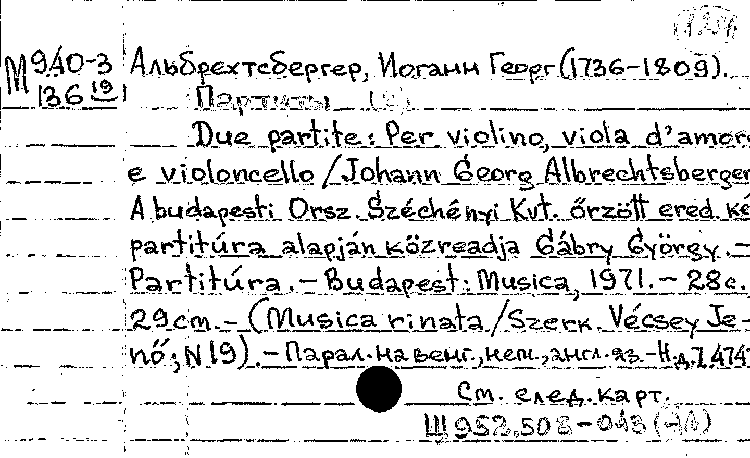 М 940-3 Альбрехтсбергер, Иоганн Георг (1736-1809).
136 19 Партиты
Due partite: Per violino, viola d'amor
e violoncello / Johann Georg Albrechtsberger
A budapesti Orsz. Széchényi Kvt. őrzött ered. ké
partitúra alapján közreadja Gábry György. –
Partitúra. – Budapest: Musica, 1971. – 28 с.
29 cm. – (Musica rinata / Szerk. Vécsey Je-
nő; N 19). – Парал. на венг., нем., англ. яз. – Н.д. 7.474
См. след. карт.
Щ 952.508-043